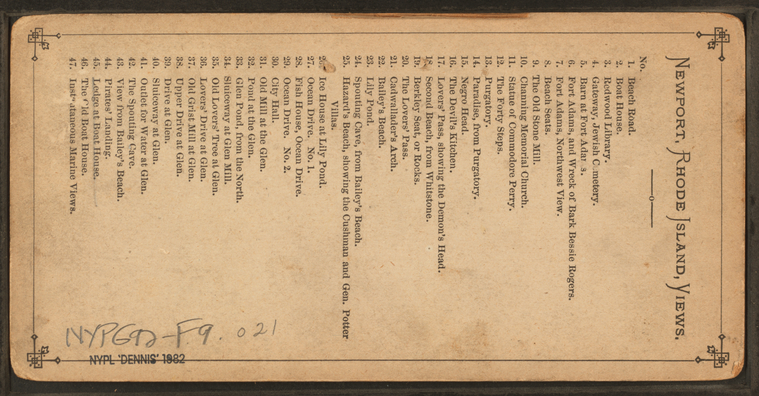 NEWPORT, RHODE ISLAND, VIEWS.
No.
1. Beach Road.
2. Boat House.
3. Redwood Library.
4. Gateway, Jewish C metery.
5. Barn at Fort Ada s.
6. Fort Adams, and Wreck of Bark Bessie Rogers.
7. Fort Adams, Northwest View.
8. Beach Seats.
9. The Old Stone Mill.
10. Channing Memorial Church.
11. Statue of Commodore Perry.
12. The Forty Steps.
13. Purgatory.
14. Paradise, from Purgatory.
15. Negro Head.
16. The Devil's Kitchen.
17. Lovers' Pass, showing the Demon's Head.
18. Second Beach, from Whitstone.
19. Berkley Seat, or Rocks.
20. The Lovers' Pass.
21. Cadwallader's Arch.
22. Bailey's Beach.
23. Lily Pond.
24. Spouting Cave, from Bailey's Beach.
25. Hazard's Beach, showing the Cushman and Gen. Potter
Villas.
26. Ice House at Lily Pond.
27. Ocean Drive. No. 1.
28. Fish House, Ocean Drive.
29. Ocean Drive. No. 2.
30. City Hall.
31. Old Mill at the Glen.
32. Pond at the Glen.
33. Glen Pond from the North.
34. Sluiceway at Glen Mill.
35. Old Lovers' Tree at Glen.
36. Lovers' Drive at Glen.
37. Old Grist Mill at Glen.
38. Upper Drive at Glen.
39. Drive at Glen.
40. Sluiceway at Glen.
41. Outlet for Water at Glen.
42. The Spouting Cave.
43. View from Bailey's Beach.
44. Pirates' Landing.
45. Ledge at Boat House.
46. The Old Boat House.
47. Instantaneous Marine Views.
NYPG92-F9. 021
NYPL 'DENNIS' 1982